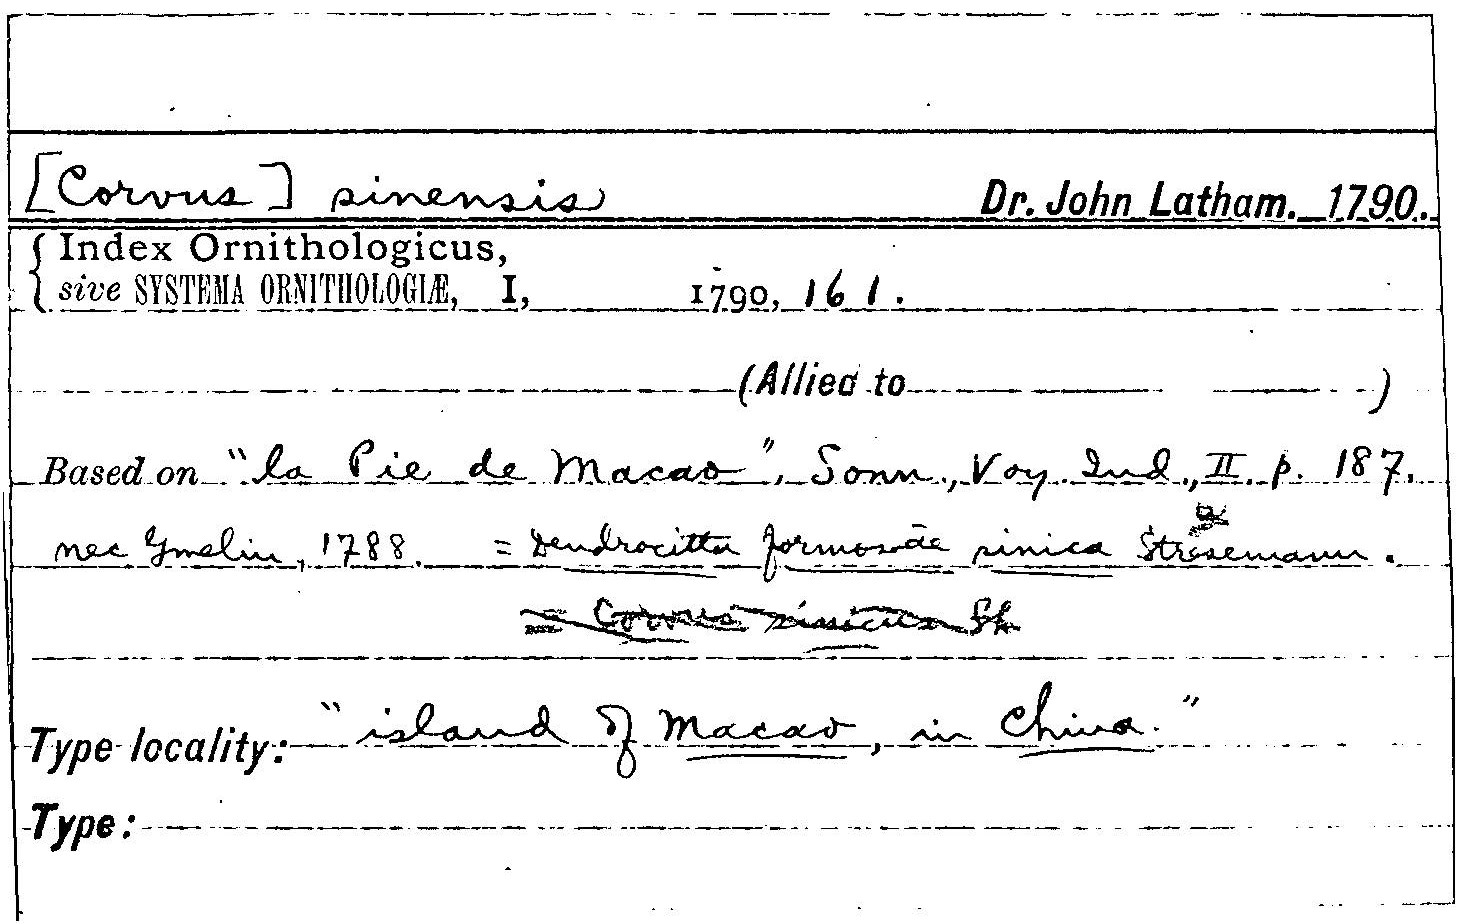 [Corvus] sinensis Dr. John Latham. 1790.
Index Ornithologicus,
sive SYSTEMA ORNITHOLOGIÆ, I, 1790, 161.
(Allied to )
Based on "la Pie de Macao", Sonn., Voy. Ind., II. p. 187.
nec Gmelin, 1788. = Dendrocitta formosae sinica Stresemann.
= Corvus sinicus
Type locality: "island of Macao, in China."
Type: